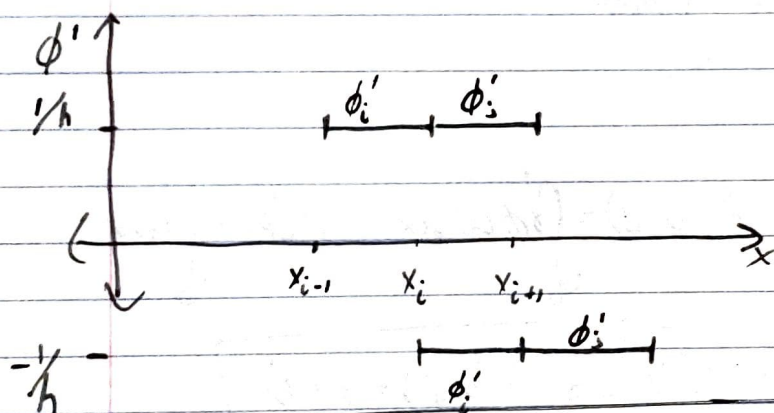 ϕ'
1/h
ϕ_i' ϕ_j'
x_{i-1} x_i x_{i+1} x
-1/h
ϕ_j'
ϕ_i'